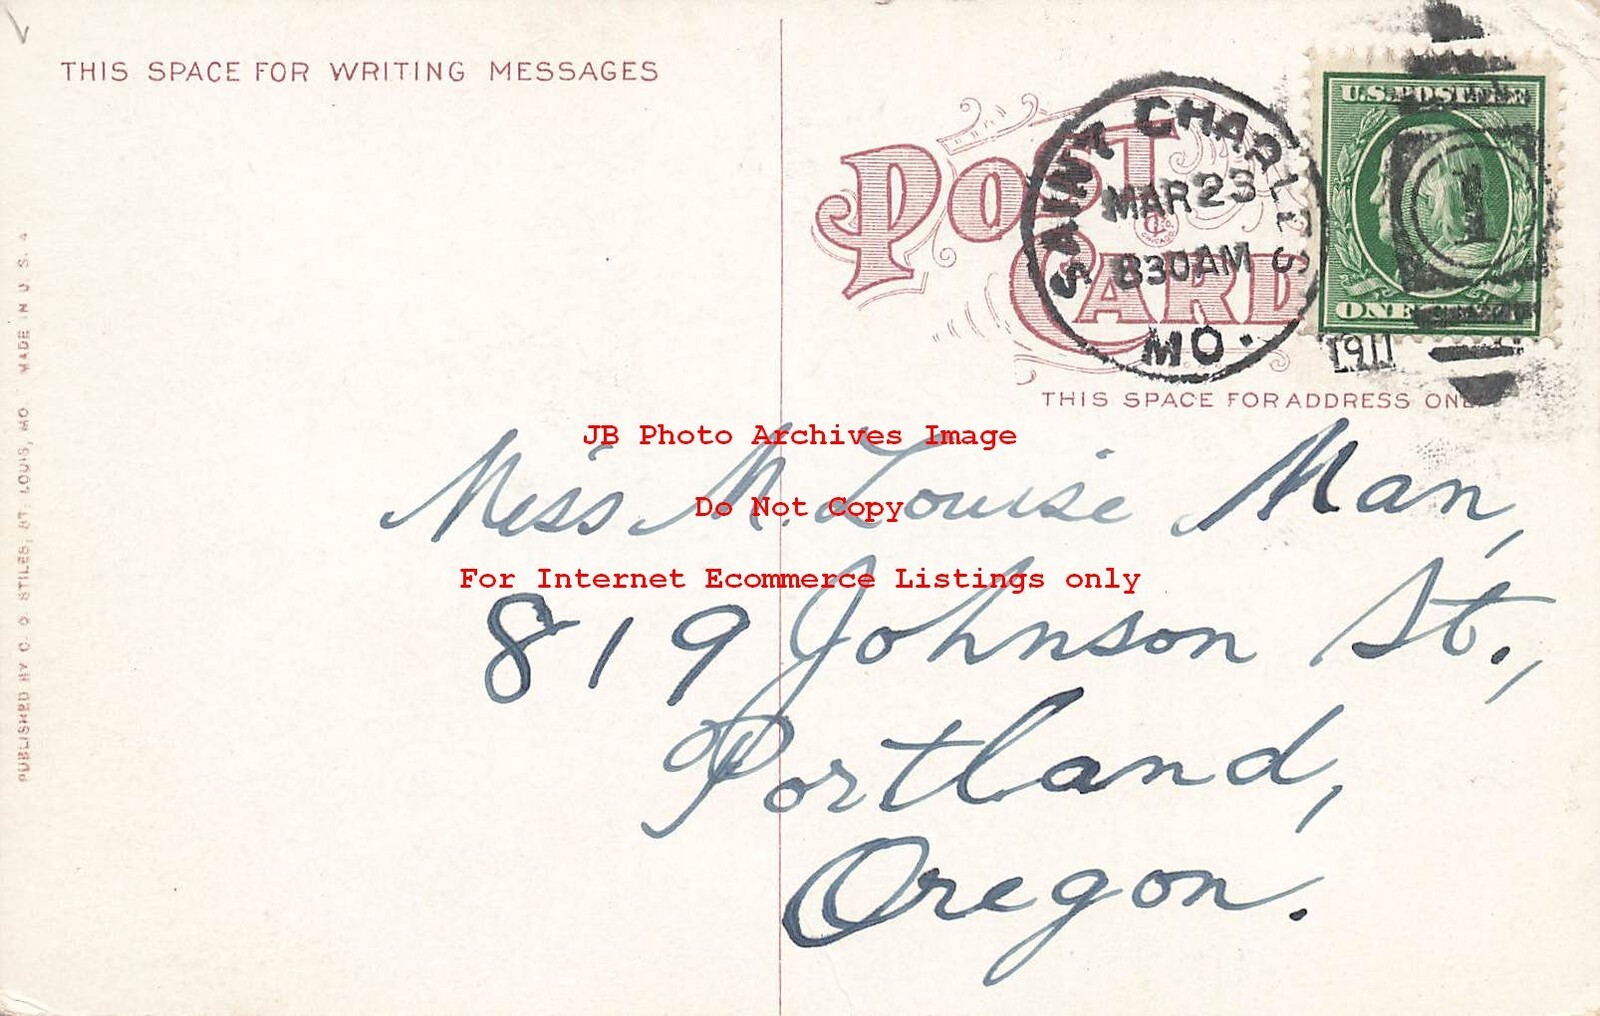 THIS SPACE FOR WRITING MESSAGES
POST CARD
SAINT CHARLES
MAR 23
830AM
MO.
1911
U.S. POSTAGE
ONE
1
THIS SPACE FOR ADDRESS ONLY
JB Photo Archives Image
Miss M. Louise Man,
Do Not Copy
For Internet Ecommerce Listings only
819 Johnson St.,
Portland,
Oregon.
PUBLISHED BY C. O STILES, ST. LOUIS, MO. MADE IN U. S. A